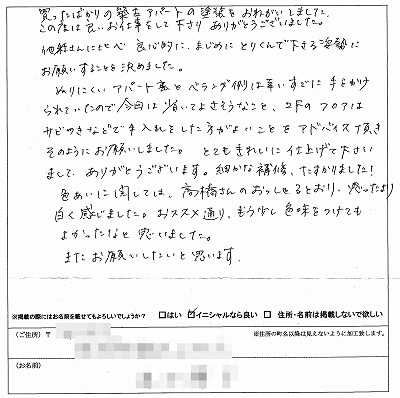 買ったばかりの築古アパートの塗装をおねがいしました。
この度は良いお仕事をして下さり ありがとうございました。
他社さんに比べ 良心的に、まじめに とりくんで下さる姿勢に
お願いすることを決めました。
ぬりにくいアパート裏とベランダ側は
られていたので今回は 省いてよさそうなこと、2Fの フロアは
サビのきなどで手入れをした方がよいことを アドバイス頂き
そのようにお願いしました。 とてもきれいに仕上げて下さい
まして ありがとうございます。細かな補修、たすかりました!
色あいに関しては、高橋さんのおっしゃるとおり、思ったより
白く感じました。おススメ通り、もう少し 色味をつけても
よかったなと思いました。
またお願いしたいと思います。
※掲載の際にはお名前を載せてもよろしいでしょうか? □はい ☑イニシャルなら良い □ 住所・名前は掲載しないで欲しい
(ご住所) 〒 ※住所の町名以降は見えないように加工致します。
(お名前)